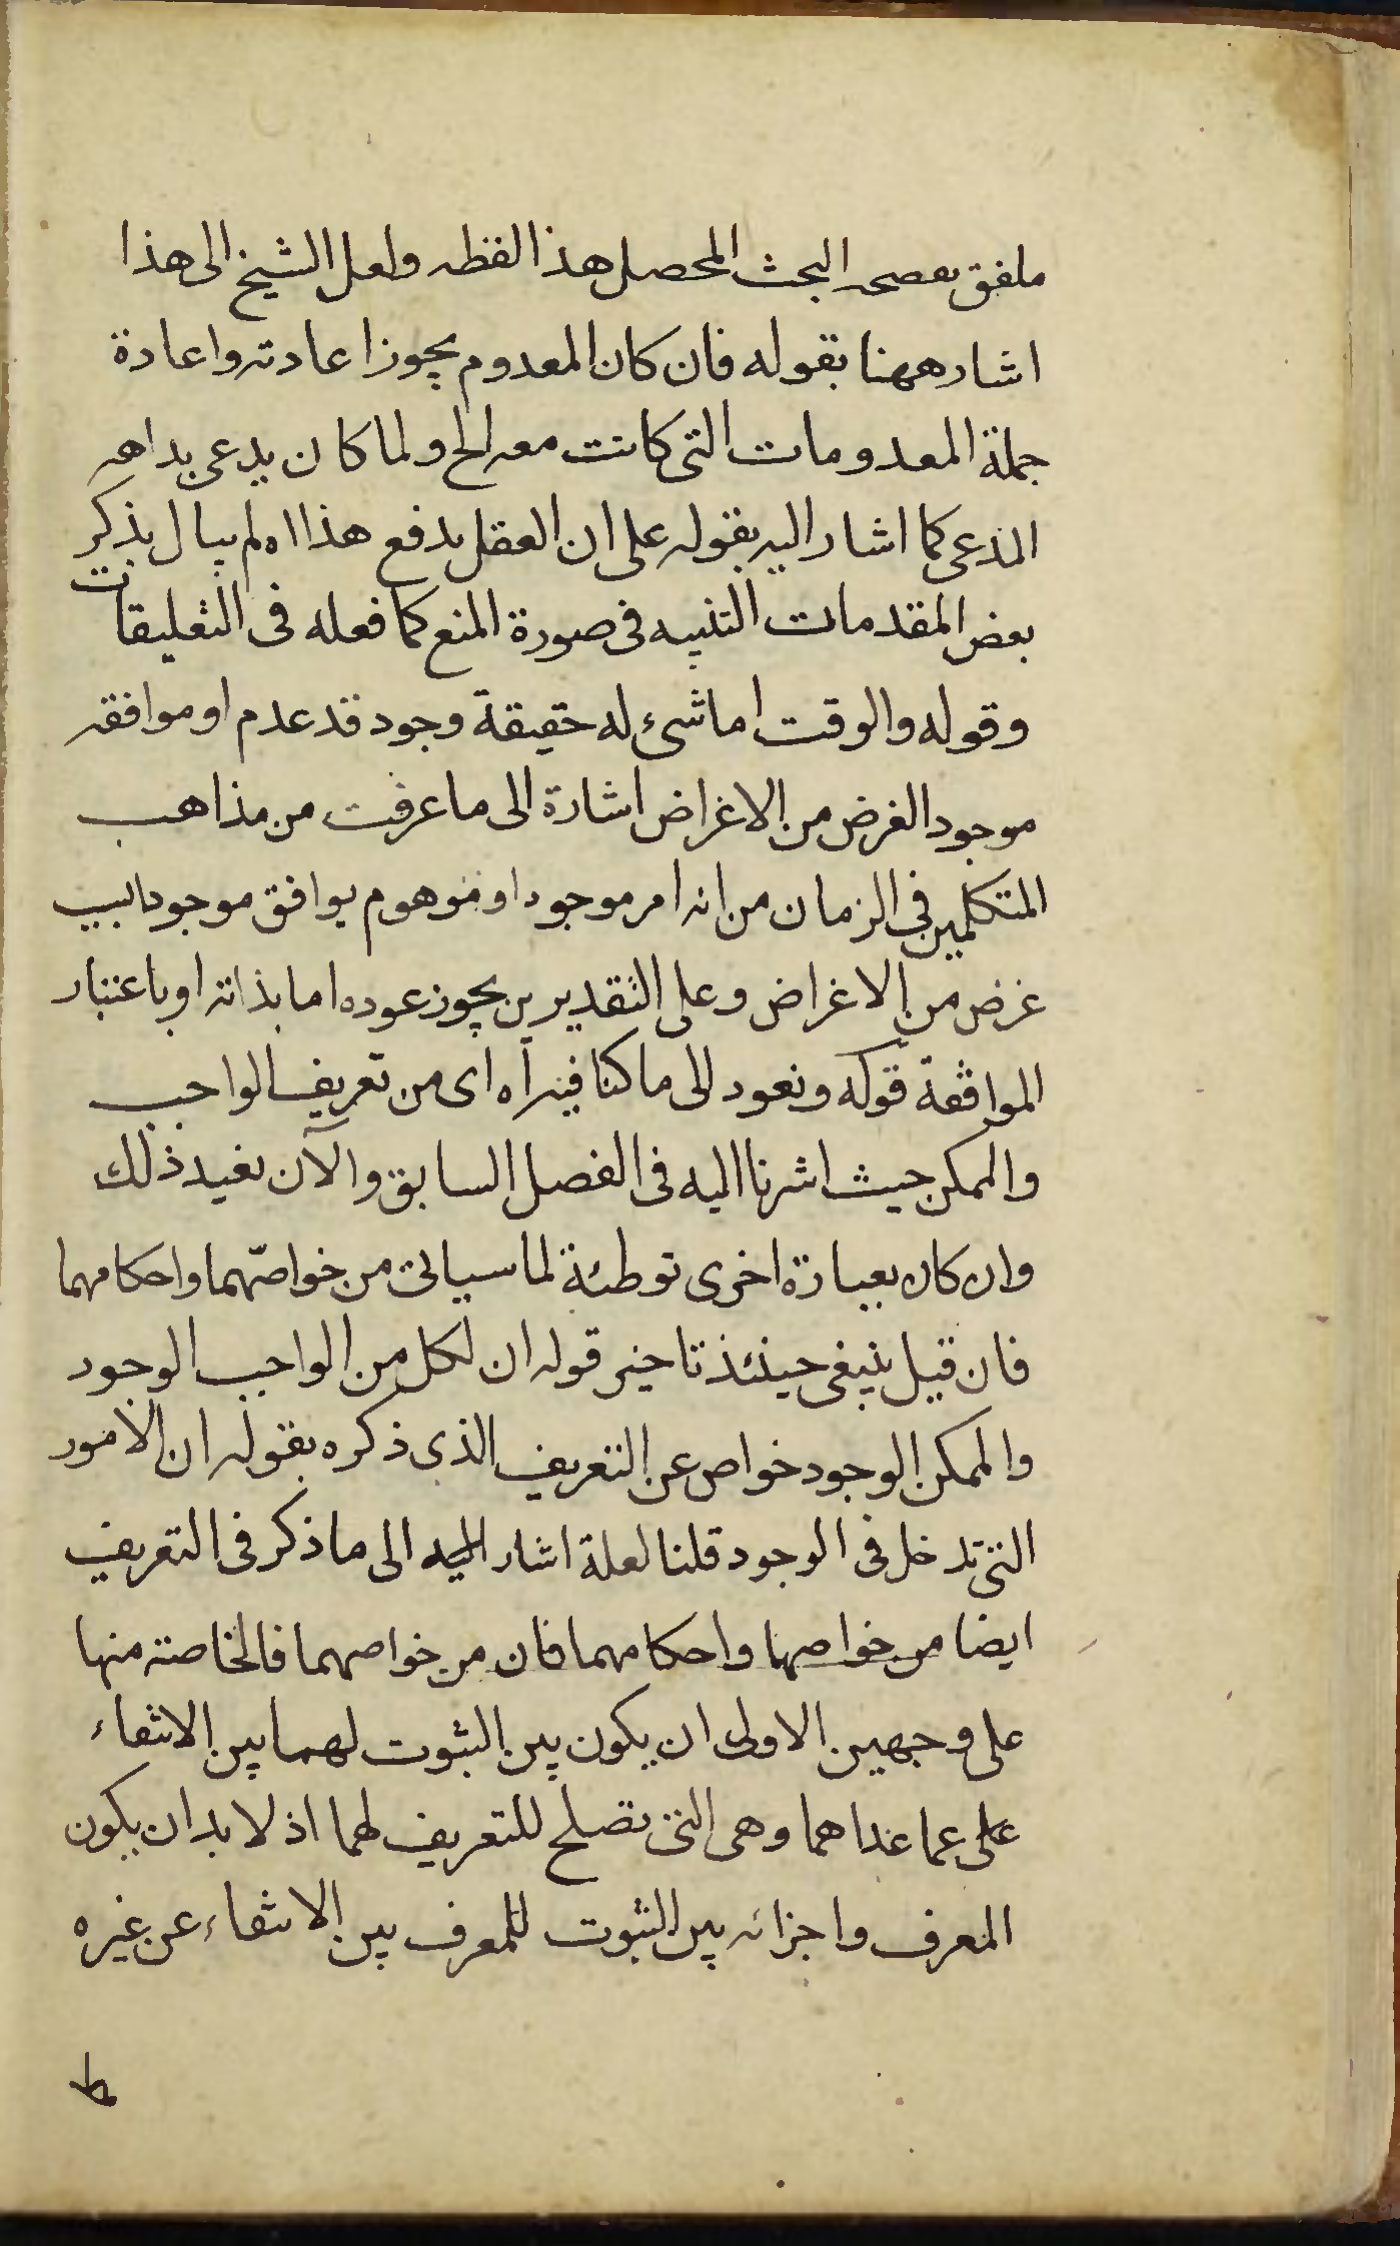 ملفق البحث المحصل هذا لفظه ولعل الشيخ الى هذا
اشار ههنا بقوله فان كان المعدوم يجوز اعادته واعادة
جملة المعدومات التى كانت معه الخ ولما كان يدعى بداهه
المدعى كما اشار اليه بقوله على ان العقل يدفع هذا اه لم يبال بذكر
بعض المقدمات التنبيه فى صورة المنع كما فعله فى التعليقات
وقوله والوقت اما شىء له حقيقة وجود قد عدم او موافقه
موجود الغرض من الاغراض اشارة الى ما عرفت من مذاهب
المتكلمين فى الزمان من انه امر موجود او موهوم يوافق موجودا بسبب
غرض من الاغراض وعلى التقديرين يجوز عوده اما بذاته او باعتبار
الموافقة قوله ونعود الى ما كنا فيه آه اى من تعريف الواجب
والممكن حيث اشرنا اليه فى الفصل السابق والآن نعيد ذلك
وان كان بعبارة اخرى توطئة لما سياتى من خواصّهما واحكامهما
فان قيل ينبغى حينئذ تاخير قوله ان لكل من الواجب الوجود
والممكن الوجود خواص عن التعريف الذى ذكره بقوله ان الامور
التى تدخل فى الوجود قلنا لعلة اشار اليه الى ما ذكر فى التعريف
ايضا من خواصها واحكامهما فان من خواصهما فالخاصته منها
على وجهين الاولى ان يكون بين الثبوت لهما بين الانتفاء
على عما عداهما وهى التى تصلح للتعريف لهما اذ لا بد ان يكون
المعرف واجزائه بين الثبوت للمعرف بين الانتفاء عن غيره